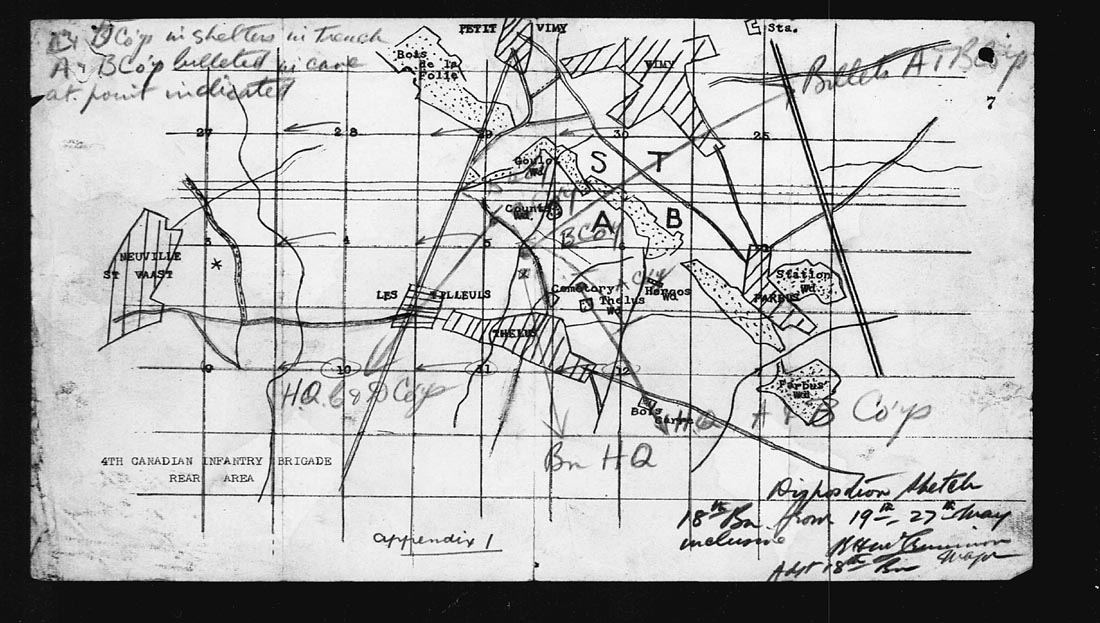 C & D Coys in shelters in trench
A & B Coys billeted in cave
at point indicated
PETIT VIMY
Sta.
Bois de la Folie
VIMY
Billets A & B Coys
7
27
28
29
30
25
Goulot Wd.
S T
Count's Wd.
A B
B Coy
3
4
5
6
NEUVILLE ST VAAST
*
LES TILLEULS
Cemetery
Thelus Wd
Hengos Wd
Station Wd
FARBUS
THELUS
9
10
11
12
7
Farbus Wd
H.Q. C & D Coys
Bois
H.Q A & B Coys
Bn HQ
4TH CANADIAN INFANTRY BRIGADE
REAR AREA
Disposition Sketch
18th Bn. from 19th - 27th May
inclusive
Major
Adjt 18th Bn
Appendix 1